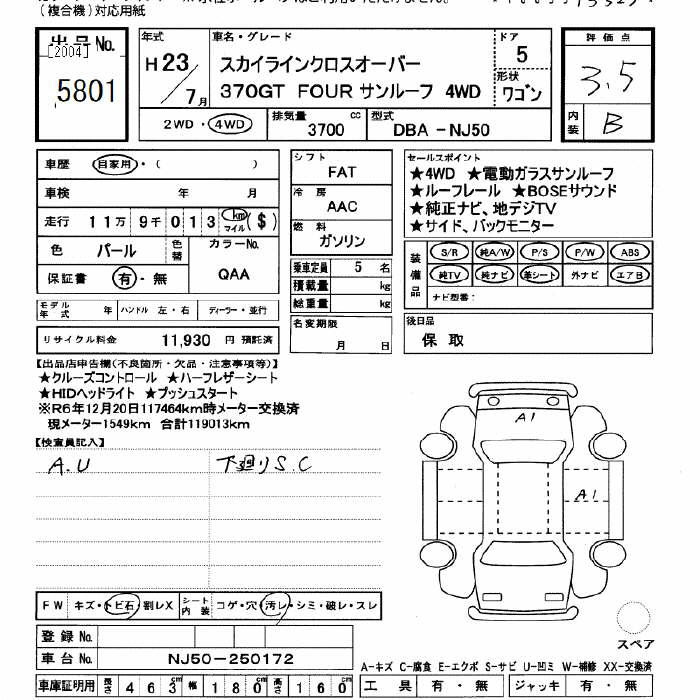 (複合機)対応用紙
出品No.
[2004]
5801
年式
H 23
7月
車名・グレード
スカイラインクロスオーバー
370GT FOUR サンルーフ 4WD
ドア
5
形状
ワゴン
評価点
3.5
内装
B
2WD・4WD
排気量
3700 cc
型式
DBA -NJ50
車歴 自家用・( )
車検 年 月
走行 11万 9千 0 1 3 km マイル ($)
色 パール 色替
カラーNo.
QAA
保証書 有・無
シフト
FAT
冷房
AAC
燃料
ガソリン
乗車定員 5 名
積載量 kg
総重量 kg
セールスポイント
★4WD ★電動ガラスサンルーフ
★ルーフレール ★BOSEサウンド
★純正ナビ、地デジTV
★サイド、バックモニター
装備品
S/R 純A/W P/S P/W ABS
純TV 純ナビ 革シート 外ナビ エアB
ナビ型番:
モデル年式 年 ハンドル 左・右 ディーラー・並行
リサイクル料金 11,930 円 預託済
名変期限
月 日
後日品
保 取
【出品店申告欄(不良箇所・欠品・注意事項等)】
★クルーズコントロール ★ハーフレザーシート
★HIDヘッドライト ★プッシュスタート
※R6年12月20日117464km時メーター交換済
現メーター1549km 合計119013km
【検査員記入】
A.U 下廻りS.C
A1
A1
FW キズ・トビ石・割レX
シート内装 コゲ・穴・汚レ・シミ・破レ・スレ
登録No.
車台No. NJ50-250172
スペア
A-キズ C-腐食 E-エクボ S-サビ U-凹ミ W-補修 XX-交換済
車庫証明用 長さ 463cm 幅 180cm 高さ 160cm
工具 有・無 ジャッキ 有・無